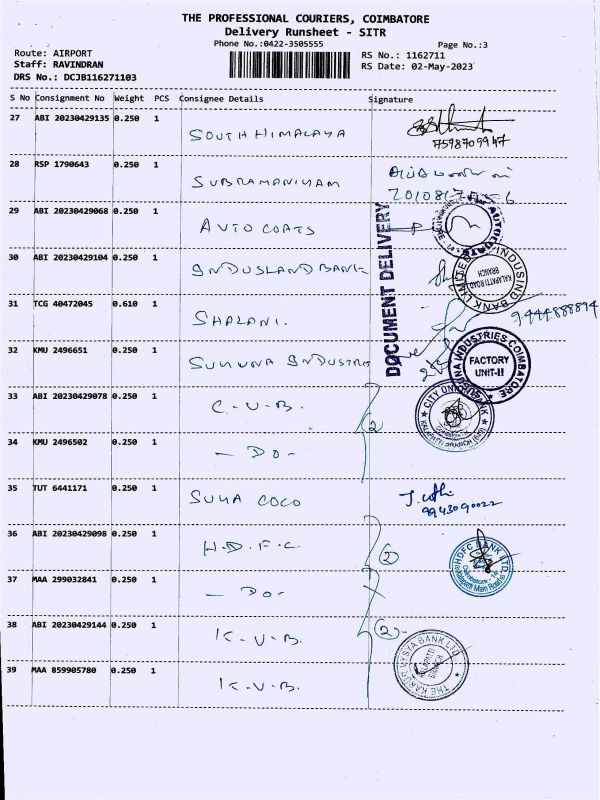 THE PROFESSIONAL COURIERS, COIMBATORE
Delivery Runsheet - SITR
Phone No.:0422-3505555
Page No.:3
Route: AIRPORT
RS No.: 1162711
Staff: RAVINDRAN
RS Date: 02-May-2023
DRS No.: DCJB116271103
S No Consignment No Weight PCS Consignee Details Signature
27 ABI 20230429135 0.250 1 SOUTH HIMALAYA
7598709947
28 RSP 1790643 0.250 1 SUBRAMANIYAM
29 ABI 20230429068 0.250 1 AUTO COATS
AUTOCOATS
30 ABI 20230429104 0.250 1 INDUSLAND BANK
INDUSIND BANK LIMITED
KALAPATTI ROAD
BRANCH
DOCUMENT DELIVERY
31 TCG 40472045 0.610 1 SHALANI.
9444888894
32 KMU 2496651 0.250 1 SUGUNA INDUSTRIE
SUGUNA INDUSTRIES COIMBATORE
FACTORY
UNIT-II
33 ABI 20230429078 0.250 1 C.U.B.
2
CITY UNION BANK
KALAPATTI BRANCH
34 KMU 2496502 0.250 1 - DO -
35 TUT 6441171 0.250 1 SUYA COCO
9943090022
36 ABI 20230429098 0.250 1 H.D.F.C
2
HDFC BANK LTD.
Kalapatti Main Road
Coimbatore - 14
37 MAA 299032841 0.250 1 - DO -
38 ABI 20230429144 0.250 1 K.V.B.
2
THE KARUR VYSYA BANK LTD
KALAPATTI
BRANCH
39 MAA 859905780 0.250 1 K.V.B.